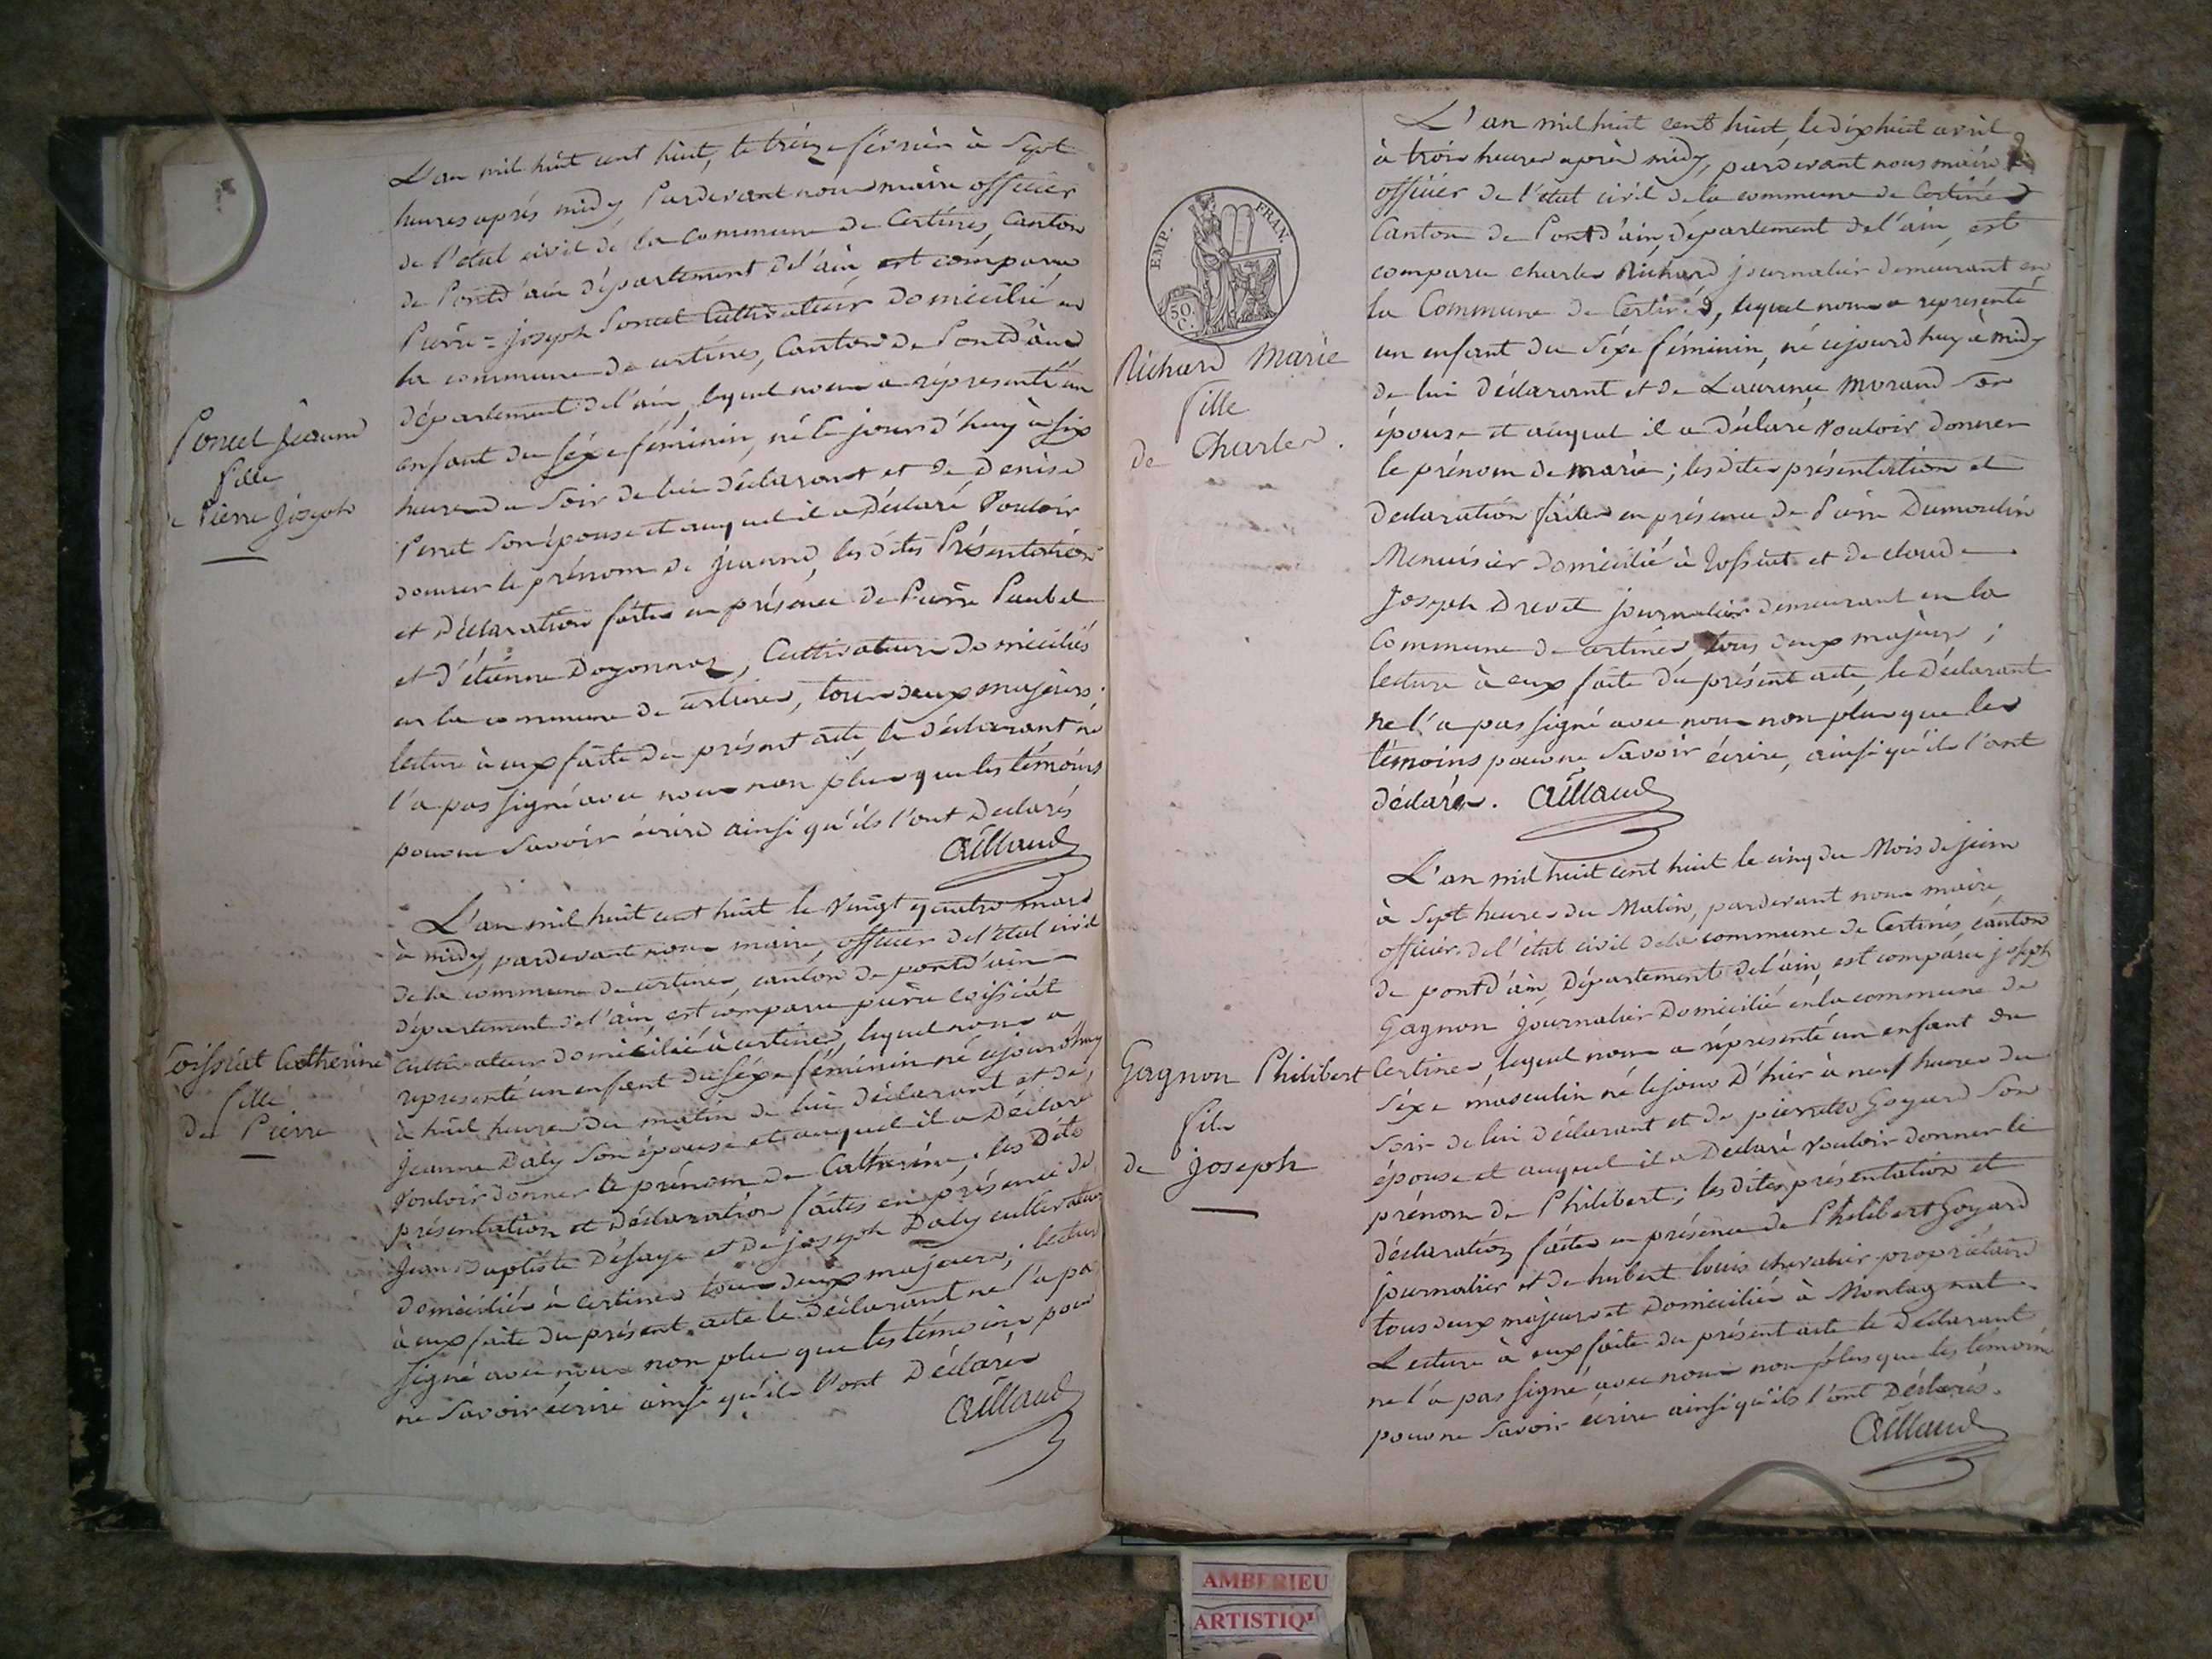 L'an mil huit cent huit, le treize février à Sept
heures après midy, Pardevant nous maire officier
de l'état civil de la commune de Certines, Canton
de Pontd'ain département del'ain, est comparu
Pierre=joseph Poncet Cultivateur domicilié en
la commune de certines, Canton de Pontd'ain
département del'ain, lequel nous a réprésenté un
enfant du séxe féminin, né le jourd'huy à six
heures du soir de lui déclarant et de Denise
Perret son épouse et auquel il a Déclaré Vouloir
donner le prénom de jeanne, les dites Présentation
et Déclaration faites en présence de Pierre Paubel
et d'étienne Doyonnax, Cultivateurs domiciliés
en la commune de certines, tous deux majeurs.
lecture à eux faite du présent acte le déclarant ne
l'a pas signé avec nous non plus que les témoins
pour ne savoir écrire ainsi qu'ils l'ont Declarés
Aillaud
Poncet jeanne
fille
de Pierre joseph
L'an mil huit cent huit le Vingt quatre mars
à midy, pardevant nous maire, officier del'état civil
dela commune de certines, canton de pontd'ain
département del'ain est comparu pierre Coissiat
Cultivateur domicilié à certines, lequel nous a
representé un enfant du séxe féminin né cejourd'huy
à huit heures du matin de lui déclarant et de
jeanne Daly son épouse et auquel il a Déclaré
Vouloir donner le prénom de Catherine, les Dites
présentation et Déclaration faites en présence de
jean Baptiste Desaye et de joseph Daly cultivateurs
domiciliés à certines tous deux majeurs; lecture
à eux faite du présent acte le Déclarant ne l'a pas
signé avec nous non plus que les témoins pour
ne savoir écrire ainsi qu'ils l'ont Déclarés
Aillaud
Coissiat Catherine
fille
De Pierre
EMP. FRAN.
50 C.
L'an mil huit cent huit, le dixhuit avril
à trois heures après midy, pardevant nous maire
officier de l'état civil de la commune de Certines
Canton de Pontd'ain, département del'ain, est
comparu charles Richard journalier demeurant en
la Commune de Certines, lequel nous a representé
un enfant du séxe féminin, né cejourd'huy à midy
de lui déclarant et de Laurence Morand son
épouse et auquel il a déclaré Vouloir donner
le prénom de marie; les dites présentation et
declaration faites en présence de Pierre Dumoulin
Menuisier domicilié à Tossiat et de claude
joseph Drevet journalier demeurant en la
Commune de certines, tous deux majeurs;
lecture à eux faite du présent acte, le Déclarant
ne l'a pas signé avec nous non plus que les
témoins pour ne savoir écrire, ainsi qu'ils l'ont
déclarés. Aillaud
Richard Marie
fille
de Charles.
L'an mil huit cent huit le cinq du Mois de juin
à sept heures du Matin, pardevant nous maire,
officier del'état civil dela commune de Certines, canton
de pontd'ain, Département del'ain, est comparu joseph
Gagnon journalier Domicilié en la commune de
Certines, lequel nous a répresenté un enfant du
séxe masculin né le jour D'hier à neuf heures du
soir de lui déclarant et de pierrette Goyard son
épouse et auquel il a Declaré vouloir donner le
prénom de Philibert; les dites présentation et
déclaration faites en présence de Philibert Goyard
journalier et de hubert louis chevalier propriétaire
tous deux majeurs et Domiciliés à Montagnat
Lecture à eux faite du présent acte le Déclarant
ne l'a pas signé avec nous non plus que les témoins
pour ne savoir écrire ainsi qu'ils l'ont Déclarés.
Aillaud
Gagnon Philibert
fils
de joseph
AMBERIEU
ARTISTIQU